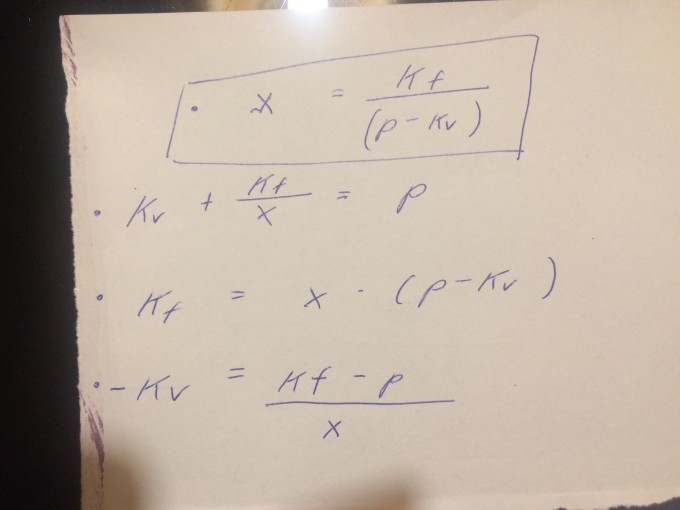 • x = Kf / (p - Kv)
• Kv + Kf / x = p
• Kf = x · (p - Kv)
• - Kv = Kf - p / x